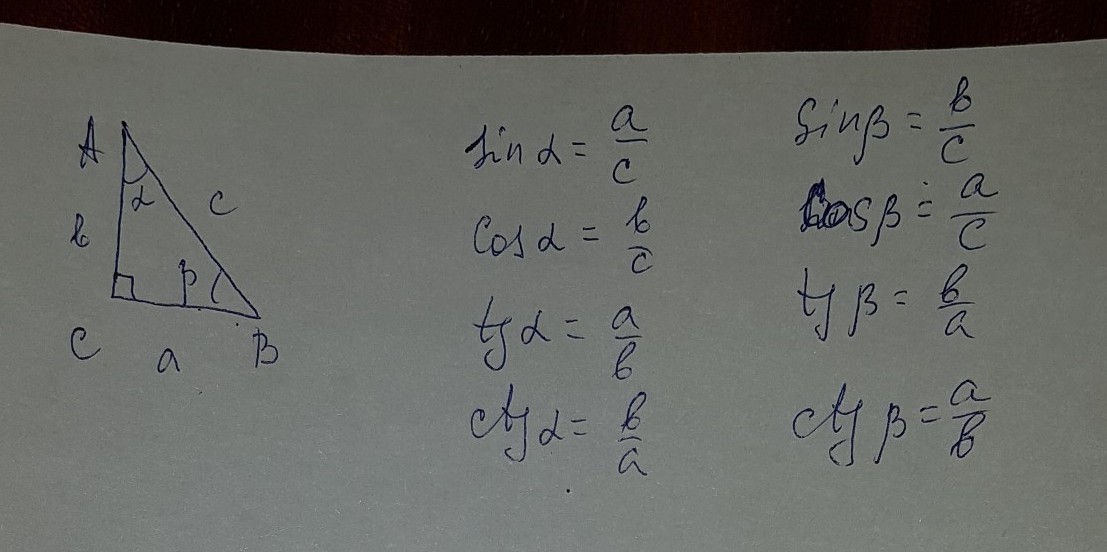 A
α
c
b
β
C
a
B
sin α = a/c
cos α = b/c
tg α = a/b
ctg α = b/a
sin β = b/c
cos β = a/c
tg β = b/a
ctg β = a/b